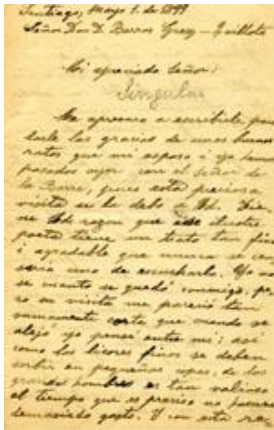 Santiago, Mayo 1. de 1899
Señor Don D. Barros Grez - Quillota
Mi apreciado Señor:
Singular
Me apresuro a escribirle para
darle las gracias de unos buenos
ratos que mi esposo i yo hemos
pasados ayer con el Señor de
la Barra, pues esta preciosa
visita se la debo a Ud. Tie
ne Ud. razon que ese ilustre
poeta tiene un trato tan fino
i agradable que nunca se can
saria uno de escucharlo. Yo no
se cuanto se quedó conmigo, pe
ro su visita me pareció tan
sumamente corta que cuando se
alejó yo pensé entre mi: asi
como los licores finos se deben
servir en pequeñas copas, de los
grandes hombres es tan valioso
el tiempo que es preciso no hacerse
demasiado gasto. I con esta